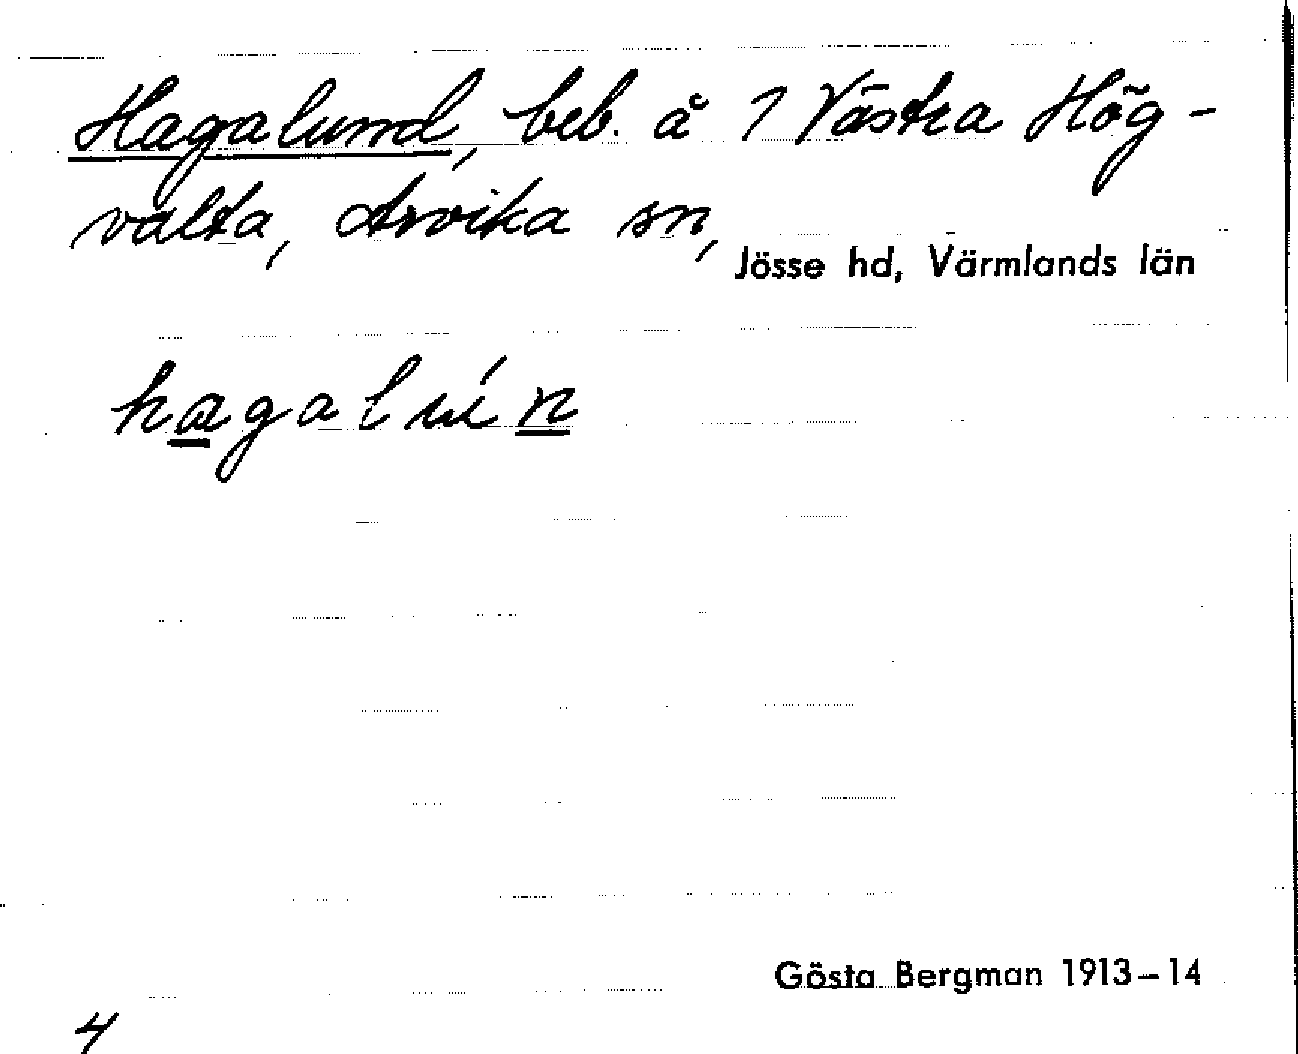 Hagalund, beb. å 1 Västra Hög-
valta, Arvika sn,
Jösse hd, Värmlands län
hagalún
Gösta Bergman 1913–14
4